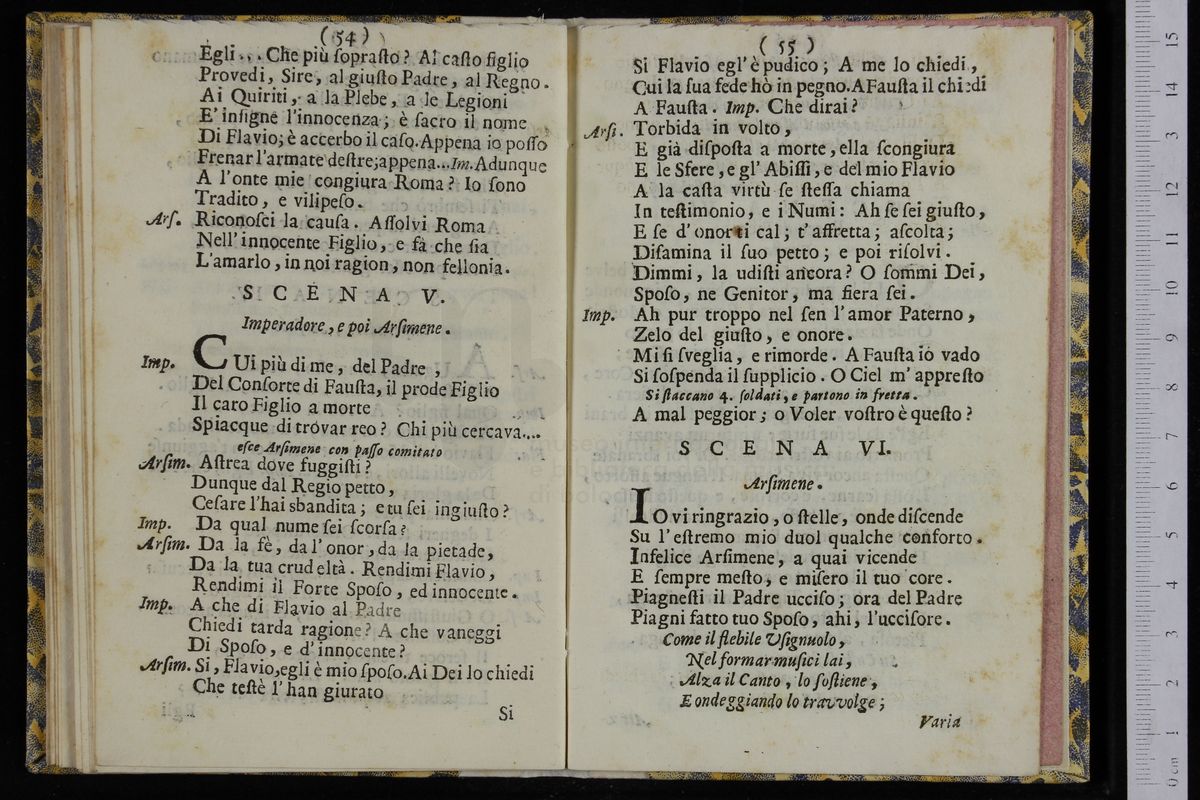 ( 54 )
Egli... Che più ſopraſto? Al caſto figlio
Provedi, Sire, al giuſto Padre, al Regno.
Ai Quiriti, a la Plebe, a le Legioni
E' inſigne l'innocenza; è ſacro il nome
Di Flavio; è accerbo il caſo. Appena io poſſo
Frenar l'armate deſtre; appena... Im. Adunque
A l'onte mie congiura Roma? Io ſono
Tradito, e vilipeſo.
Arſ. Riconoſci la cauſa. Aſſolvi Roma
Nell'innocente Figlio, e fà che ſia
L'amarlo, in noi ragion, non fellonia.
SCENA V.
Imperadore, e poi Arſimene.
Imp. CUi più di me, del Padre,
Del Conſorte di Fauſta, il prode Figlio
Il caro Figlio a morte
Spiacque di tròvar reo? Chi più cercava....
eſce Arſimene con paſſo comitato
Arſim. Aſtrea dove fuggiſti?
Dunque dal Regio petto,
Ceſare l'hai sbandita; e tu ſei ingiuſto?
Imp. Da qual nume ſei ſcorſa?
Arſim. Da la fè, da l'onor, da la pietade,
Da la tua crudeltà. Rendimi Flavio,
Rendimi il Forte Spoſo, ed innocente.
Imp. A che di Flavio al Padre
Chiedi tarda ragione? A che vaneggi
Di Spoſo, e d'innocente?
Arſim. Si, Flavio, egli è mio ſpoſo. Ai Dei lo chiedi
Che teſtè l'han giurato
Si
( 55 )
Si Flavio egl'è pudico; A me lo chiedi,
Cui la ſua fede hò in pegno. A Fauſta il chiedi
A Fauſta. Imp. Che dirai?
Arſi. Torbida in volto,
E già diſpoſta a morte, ella ſcongiura
E le Sfere, e gl'Abiſſi, e del mio Flavio
A la caſta virtù ſe ſteſſa chiama
In teſtimonio, e i Numi: Ah ſe ſei giuſto,
E ſe d'onor ti cal; t'affretta; aſcolta;
Diſamina il ſuo petto; e poi riſolvi.
Dimmi, la udiſti ancora? O ſommi Dei,
Spoſo, ne Genitor, ma fiera ſei.
Imp. Ah pur troppo nel ſen l'amor Paterno,
Zelo del giuſto, e onore.
Mi ſi ſveglia, e rimorde. A Fauſta io vado
Si ſoſpenda il ſupplicio. O Ciel m'appreſto
Si ſtaccano 4. ſoldati, e partono in fretta.
A mal peggior; o Voler voſtro è queſto?
SCENA VI.
Arſimene.
IO vi ringrazio, o ſtelle, onde diſcende
Su l'eſtremo mio duol qualche conforto.
Infelice Arſimene, a quai vicende
E ſempre meſto, e miſero il tuo core.
Piagneſti il Padre ucciſo; ora del Padre
Piagni fatto tuo Spoſo, ahi, l'ucciſore.
Come il flebile Uſignuolo,
Nel formar muſici lai,
Alza il Canto, lo ſoſtiene,
E ondeggiando lo travvolge;
Varia